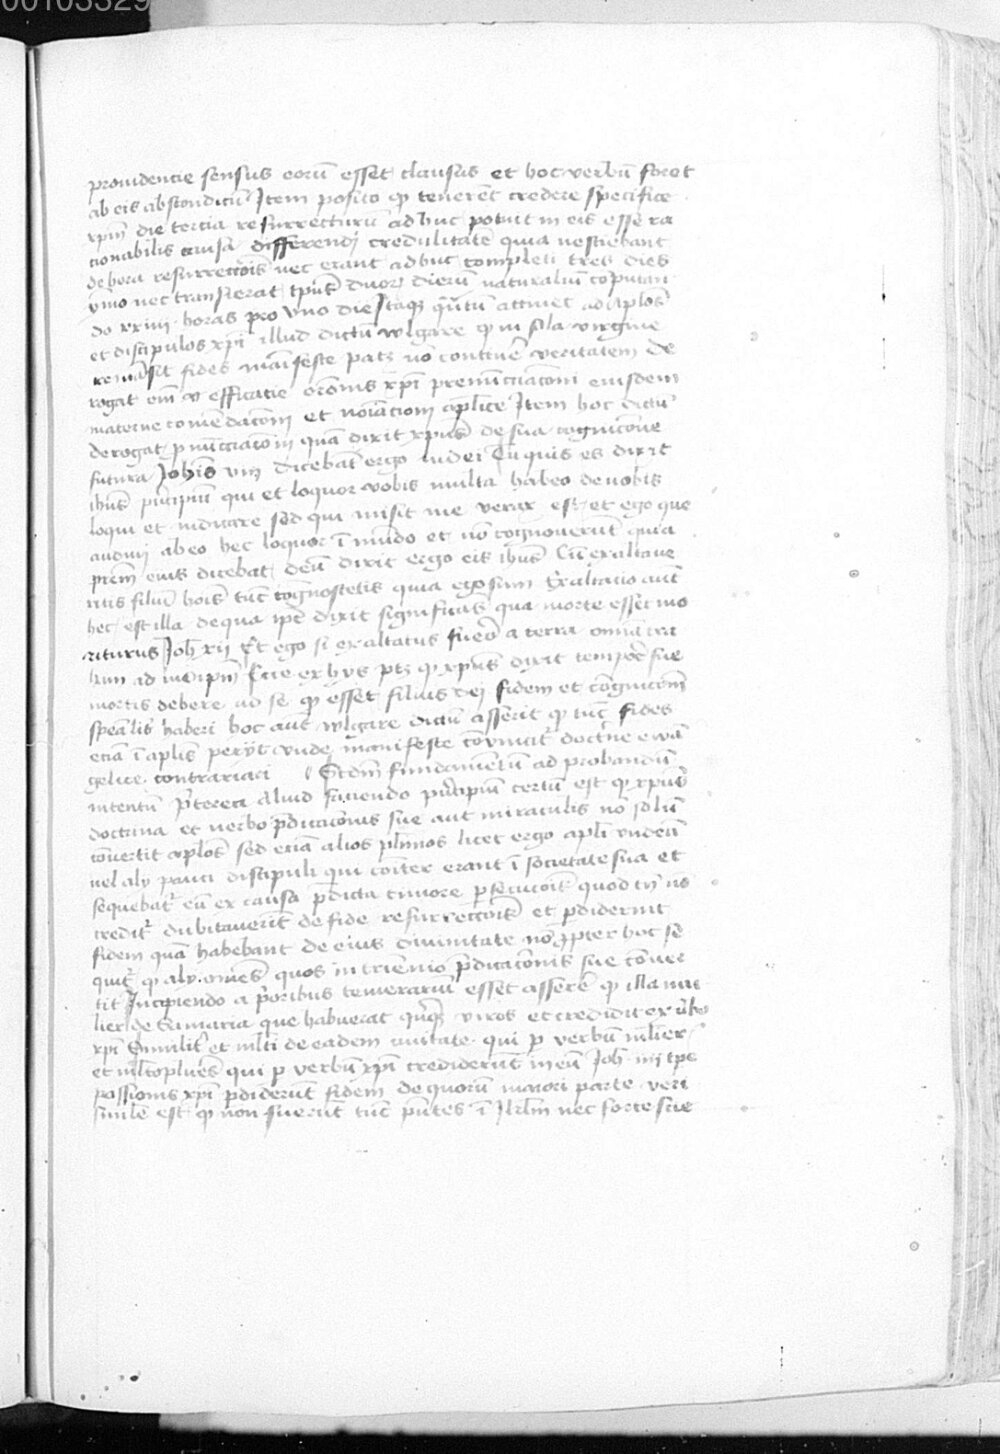 00103329
prouidencie sensus eorū esset clausus et hoc verbū foret
ab eis absconditū Item posito qp tenerēt credere specifice
xpm̄ die tercia resurrecturū adhuc potuit in eis esse ra
cionabilis causa differendi credulitatē quia nesciebant
de hora resurrectōis nec erant adhuc completi tres dies
ymo nec transierat tp̄us duorꝝ dierū naturaliū cōputan
do xxiiij horas pro vno die Itaqꝫ quātū attinet ad aplos̄
et discipulos xpī illud dictū wlgare qp in sola virgine
remāsit fides manifeste patꝫ nō continē veritatem De
rogat em̄ efficacie orōnis xpī prenūcciacōni eiusdem
materne cōmēdacōni et noīacioni aplice Item hoc dictū
derogat pnūcciacōni quā dixit xpūs de sua cognicōne
futura Johīs viij dicebāt ergo iudei Tu quis es dixit
ihūs pricipiū qui et loquor vobis multa habeo de uobis
loqui et iudicare sed qui misit me verax est et ego que
audiui ab eo hec loquor ī mūdo et nō cognouerūt quia
prēm eius dicebat deū dixit ergo eis ihūs Cū exaltaue
ritis filiū hoīs tūc cognoscetis quia ego sum Exaltacio aūt
hec est illa de qua ip̄e dixit significās qua morte esset mo
riturus Joh xij Et ego si exaltatus fuero a terra omīa tra
ham ad meip̄m Ecce ex hys ptꝫ qp xpūs dixit tempore sue
mortis debere ad se qp esset filius dei fidem et cognicōem
specālit haberi hoc aūt wlgare dictū asserit qp tūc fides
eciā ī aplis perijt vnde manifeste cōvincit doctrīe ewā
gelice contrariari Scdm̄ fundamentū ad probandū
intentū Preterea aliud faciendo pricipiū certū est qp xpūs
doctrina et uerbo pdicacōnis sue aut miraculis nō solū
cōuertit aplos̄ sed eciā alios plimos licet ergo apli vndeci
uel alij pauci discipuli qui coīter erant ī societate sua et
sequebat eū ex causa pdicta timore psecucōis quod in us
credit dubitauerīt de fide resurrectōis et pdiderint
fidem quā habebant de eius diuinitate nō ppter hoc se
quit qp alij omēs quos in triennio pdicacōnis sue cōuer
tit Incipiendo a prioribus temerariū esset asserē qp illa mu
lier de Samaria que habuerat quīqꝫ viros et credidit ex ūbo
xpī Similit et mlti de eadem ciuitate qui p verbū mlier
et mlto plures qui p verbū xpī crediderūt in eū Joh iiij tpe
passionis xpī pdiderūt fidem de quorū maiori parte veri
simile est qp non fuerūt tūc pntes ī Jrlm nec forte sciē